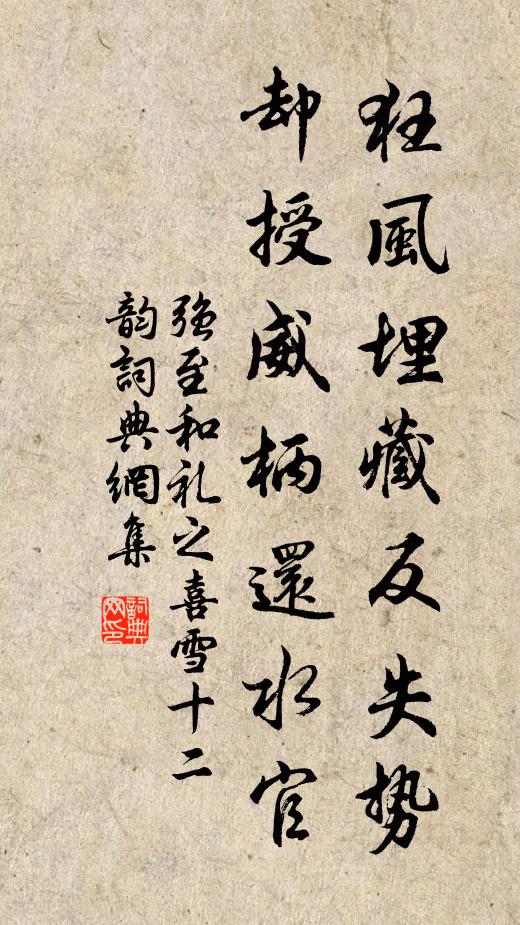 狂風埋藏反失勢
却授威柄還水官
強至和礼之喜雪十二
韵詞典網集
詞典
网印